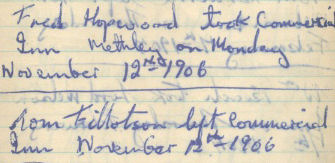 Fred Hopewood took Commercial
Inn Methley on Monday
November 12th 1906
Tom Tillotson left Commercial
Inn November 12th 1906